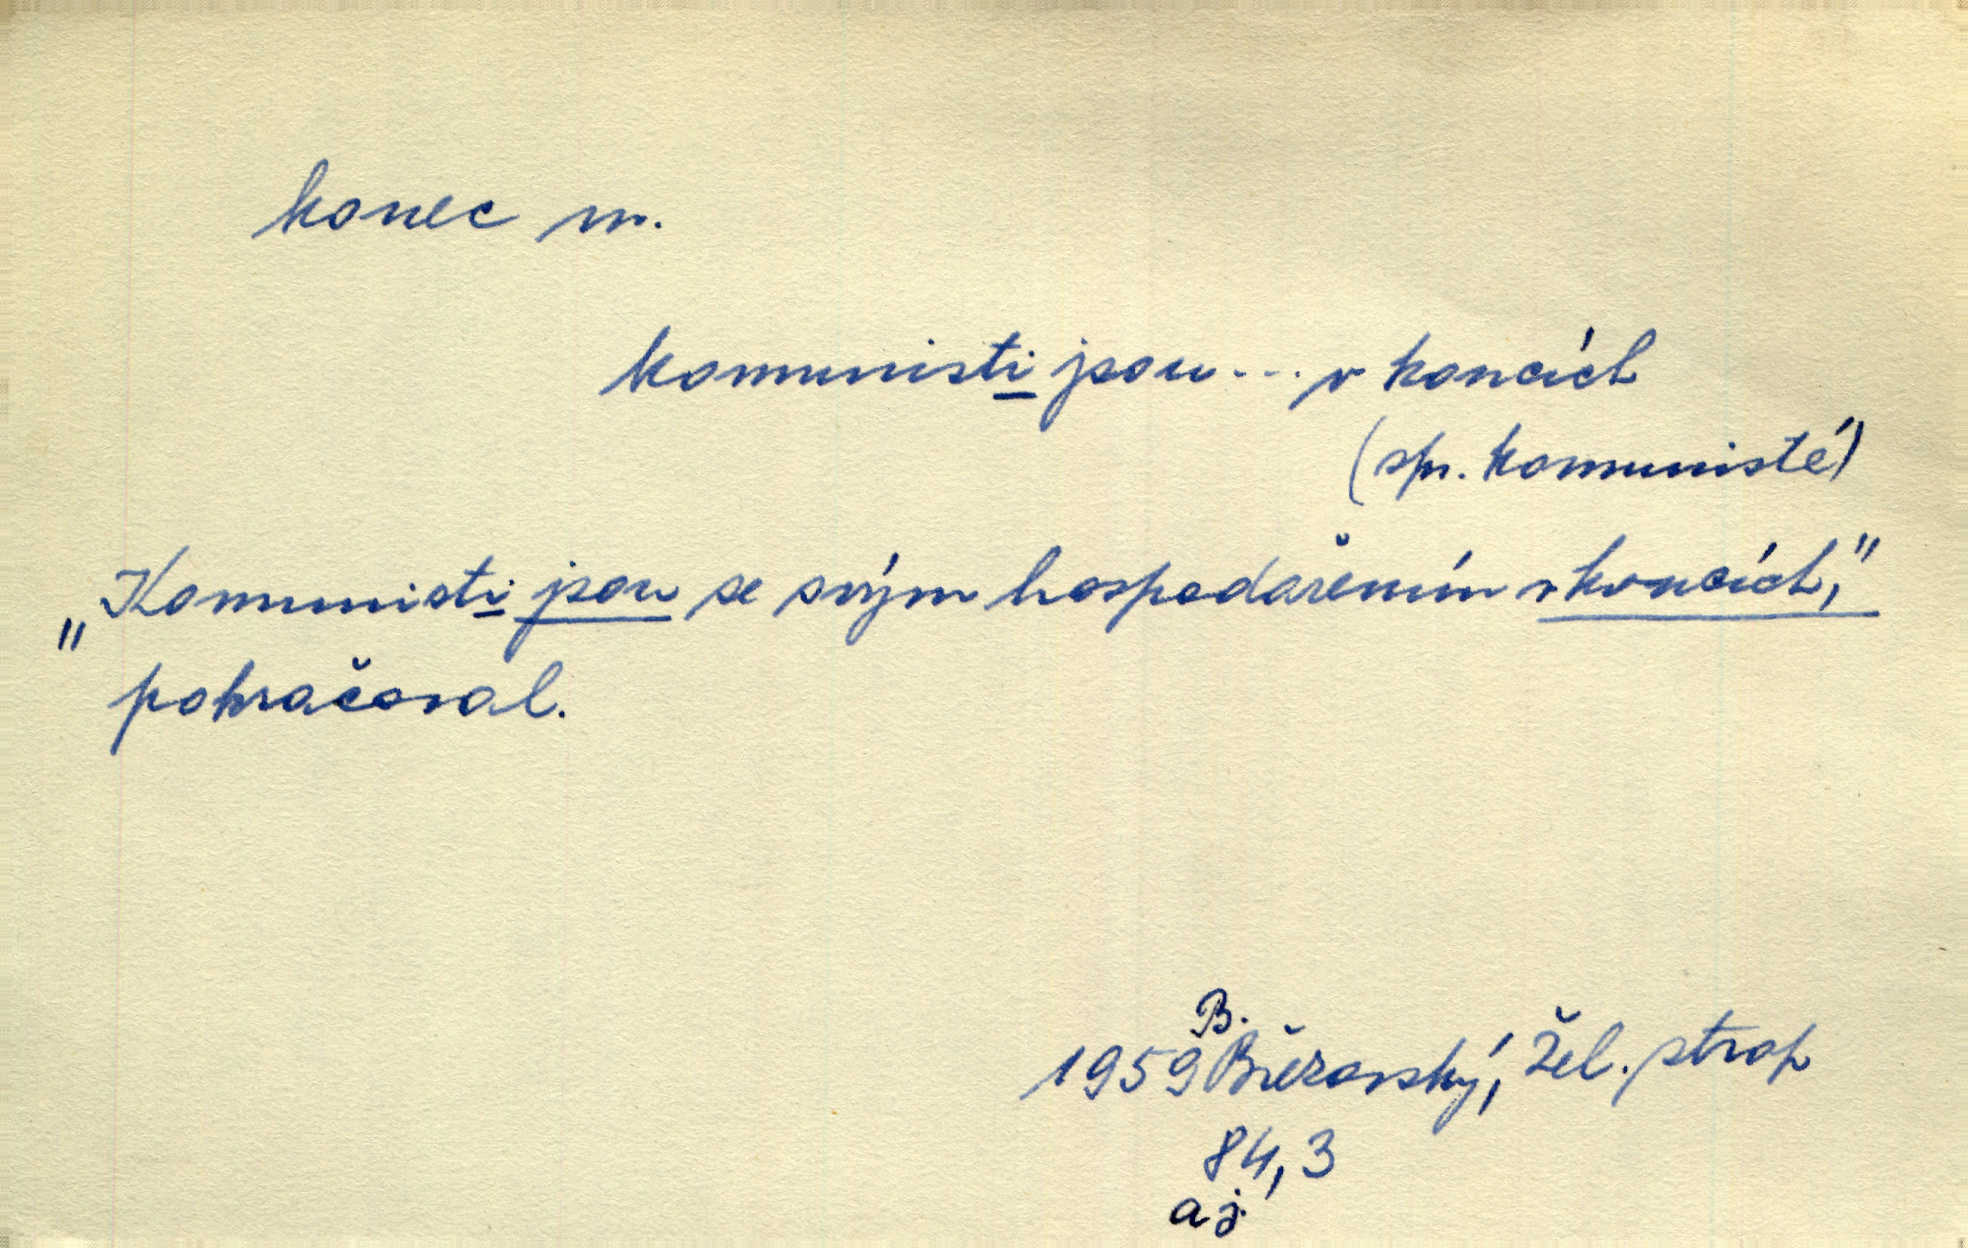 konec m.
komunisti jsou... v koncích
(spr. komunisté)
„Komunisti jsou se svým hospodařením v koncích,"
pokračoval.
B.
1959 Březovský, Žel. strop
84,3
aj